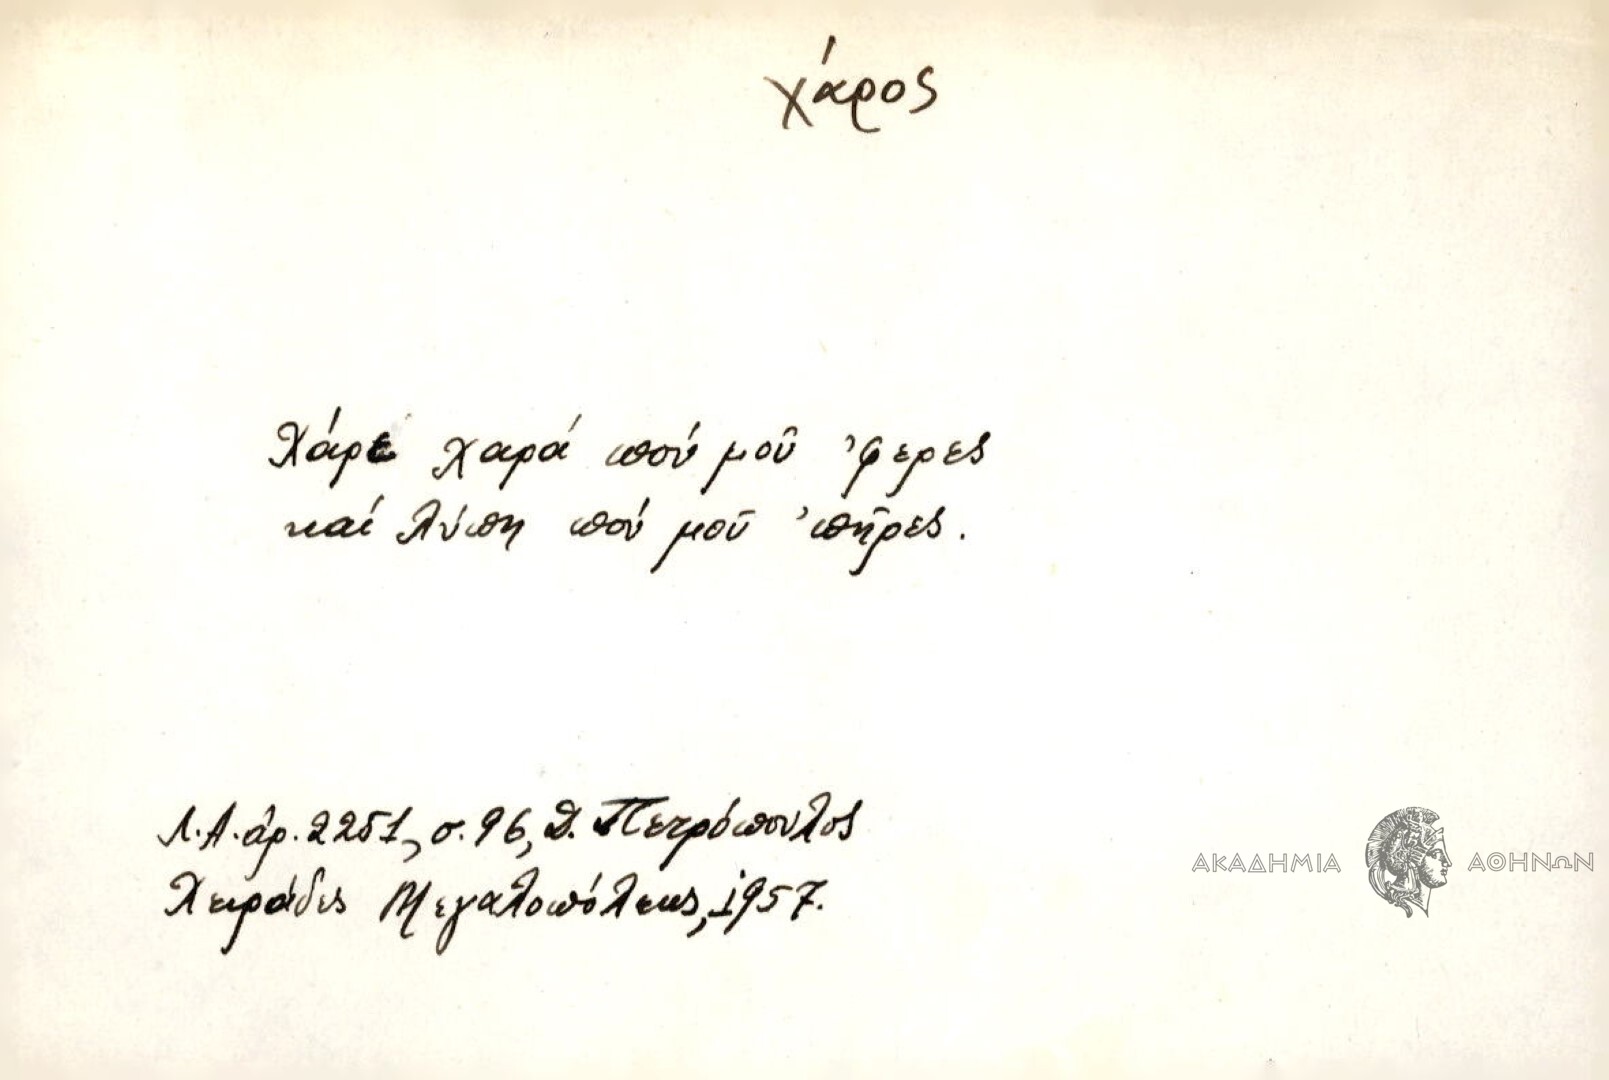 χάρος
Χάρε χαρά πού μοῦ 'φερες
καί λύπη πού μοῦ 'πῆρες.
Λ.Α. ἀρ. 2251, σ. 96, Δ. Πετρόπουλος
Χειράδες Μεγαλοπόλεως, 1957.
ΑΚΑΔΗΜΙΑ ΑΘΗΝΩΝ